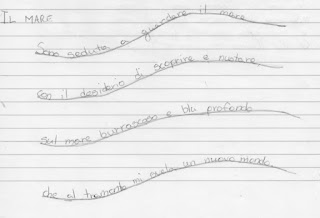 IL MARE
Sono seduta a guardare il mare
Con il desiderio di scoprire e nuotare
sul mare burroscoso e blu profondo
che al tramonto mi svela un nuovo mondo